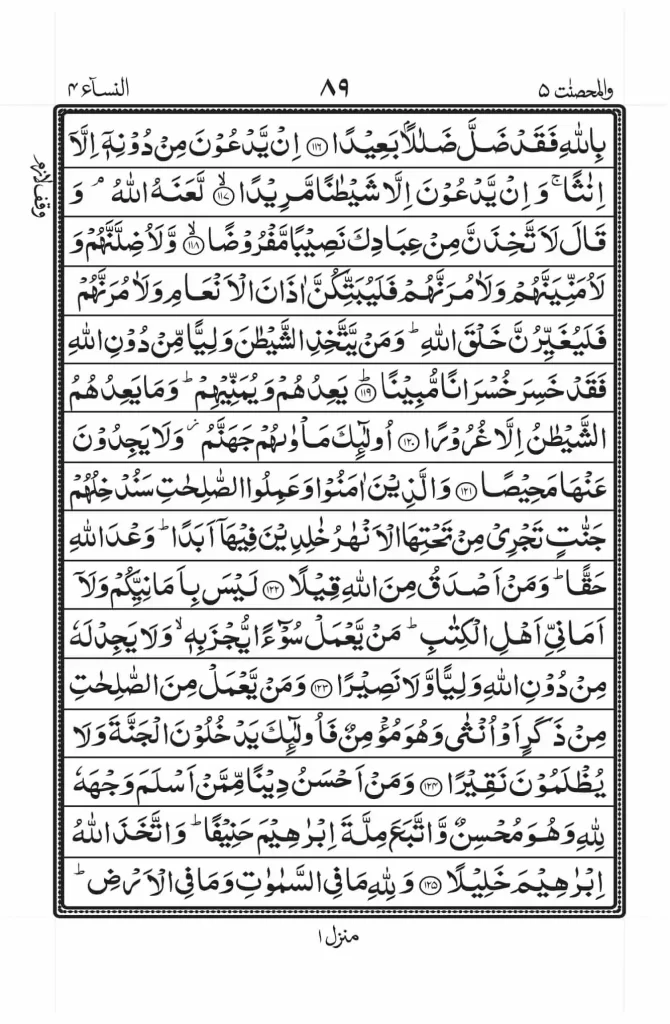 والمحصنٰت ۵ ۸۹ النسآء ۴
بِاللّٰهِ فَقَدْ ضَلَّ ضَلٰلًاۢ بَعِيْدًا ﴿۱۱۶﴾ اِنْ يَّدْعُوْنَ مِنْ دُوْنِهٖۤ اِلَّاۤ
وقف لازم
اِنٰثًا ۚ وَ اِنْ يَّدْعُوْنَ اِلَّا شَيْطٰنًا مَّرِيْدًا ۙ﴿۱۱۷﴾ لَّعَنَهُ اللّٰهُ ۘ وَ
قَالَ لَاَ تَّخِذَنَّ مِنْ عِبَادِكَ نَصِيْبًا مَّفْرُوْضًا ۙ﴿۱۱۸﴾ وَّلَاُضِلَّنَّهُمْ وَ
لَاُمَنِّيَنَّهُمْ وَلَاٰمُرَنَّهُمْ فَلَيُبَتِّكُنَّ اٰذَانَ الْاَنْعَامِ وَلَاٰمُرَنَّهُمْ
فَلَيُغَيِّرُنَّ خَلْقَ اللّٰهِ ؕ وَمَنْ يَّتَّخِذِ الشَّيْطٰنَ وَلِيًّا مِّنْ دُوْنِ اللّٰهِ
فَقَدْ خَسِرَ خُسْرَانًا مُّبِيْنًا ؕ﴿۱۱۹﴾ يَعِدُهُمْ وَيُمَنِّيْهِمْ ؕ وَمَا يَعِدُهُمُ
الشَّيْطٰنُ اِلَّا غُرُوْرًا ﴿۱۲۰﴾ اُولٰٓئِكَ مَاْوٰىهُمْ جَهَنَّمُ ؗ وَلَا يَجِدُوْنَ
عَنْهَا مَحِيْصًا ﴿۱۲۱﴾ وَالَّذِيْنَ اٰمَنُوْا وَعَمِلُوا الصّٰلِحٰتِ سَنُدْخِلُهُمْ
جَنّٰتٍ تَجْرِيْ مِنْ تَحْتِهَا الْاَنْهٰرُ خٰلِدِيْنَ فِيْهَاۤ اَبَدًا ؕ وَعْدَ اللّٰهِ
حَقًّا ؕ وَمَنْ اَصْدَقُ مِنَ اللّٰهِ قِيْلًا ﴿۱۲۲﴾ لَيْسَ بِاَمَانِيِّكُمْ وَلَاۤ
اَمَانِيِّ اَهْلِ الْكِتٰبِ ؕ مَنْ يَّعْمَلْ سُوْٓءًا يُّجْزَ بِهٖ ۙ وَلَا يَجِدْ لَهٗ
مِنْ دُوْنِ اللّٰهِ وَلِيًّا وَّلَا نَصِيْرًا ﴿۱۲۳﴾ وَمَنْ يَّعْمَلْ مِنَ الصّٰلِحٰتِ
مِنْ ذَكَرٍ اَوْ اُنْثٰى وَهُوَ مُؤْمِنٌ فَاُولٰٓئِكَ يَدْخُلُوْنَ الْجَنَّةَ وَلَا
يُظْلَمُوْنَ نَقِيْرًا ﴿۱۲۴﴾ وَمَنْ اَحْسَنُ دِيْنًا مِّمَّنْ اَسْلَمَ وَجْهَهٗ
لِلّٰهِ وَهُوَ مُحْسِنٌ وَّاتَّبَعَ مِلَّةَ اِبْرٰهِيْمَ حَنِيْفًا ؕ وَاتَّخَذَ اللّٰهُ
اِبْرٰهِيْمَ خَلِيْلًا ﴿۱۲۵﴾ وَلِلّٰهِ مَا فِي السَّمٰوٰتِ وَمَا فِي الْاَرْضِ ؕ
منزل ۱